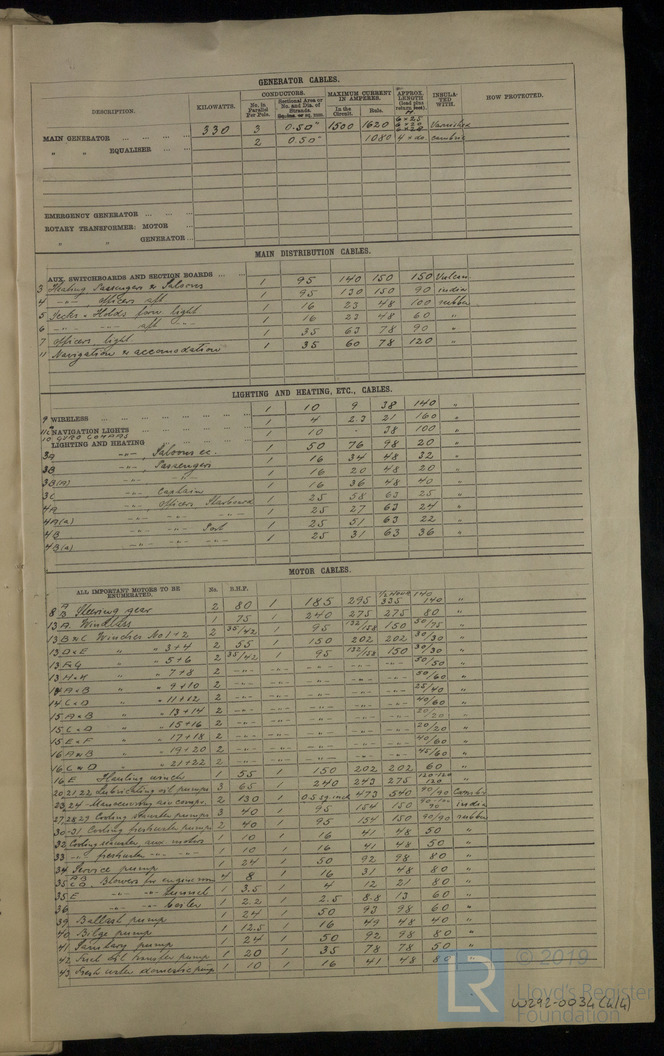 GENERATOR CABLES.
DESCRIPTION. KILOWATTS. CONDUCTORS. MAXIMUM CURRENT IN AMPERES. APPROX. LENGTH (lead plus return feet). INSULATED WITH. HOW PROTECTED.
No. in Parallel Per Pole. Sectional Area or No. and Dia. of Strands. Sq. ins. or sq. mm. In the Circuit. Rule.
MAIN GENERATOR 330 3 0.50" 1500 1620 6×25 Varnished
" " EQUALISER 2 0.50" 1080 4×do. cambric
EMERGENCY GENERATOR
ROTARY TRANSFORMER: MOTOR
" " GENERATOR
MAIN DISTRIBUTION CABLES.
AUX. SWITCHBOARDS AND SECTION BOARDS
3 Heating Passengers & Saloons 1 95 140 150 150 Vulcan
4 -"- officers aft 1 95 130 150 90 india
5 Decks & Holds fore light 1 16 23 48 100 rubber
6 -"- -"- aft -"- 1 16 23 48 60 "
7 officers light 1 35 63 78 90 "
11 Navigation & accomodation 1 35 60 78 120 "
LIGHTING AND HEATING, ETC., CABLES.
9 WIRELESS 1 10 9 38 140 "
NAVIGATION LIGHTS 1 4 2.3 21 160 "
10 GYRO COMPASS 1 10 - 38 100 "
LIGHTING AND HEATING
3A -"- Saloons ec. 1 50 76 98 20 "
3B -"- Passengers 1 16 34 48 32 "
3B(A) -"- -"- 1 16 20 48 20 "
3C -"- Captain 1 16 36 48 40 "
4A -"- officers Starboard 1 25 58 63 25 "
4A(a) -"- -"- -"- 1 25 27 63 24 "
4B -"- -"- Port 1 25 51 63 22 "
4B(a) -"- -"- -"- 1 25 31 63 36 "
MOTOR CABLES.
ALL IMPORTANT MOTORS TO BE ENUMERATED. No. B.H.P.
8 A B Steering gear 2 80 1 185 295 ½ hour 335 140 140 "
13 A. Windlass 1 75 1 240 275 275 80 "
13 B & C Winches No 1+2 2 35/42 1 95 132/158 150 50/75 "
13 D & E " " 3+4 2 55 1 150 202 202 30/30 "
13 F G " " 5+6 2 35/42 1 95 132/158 150 30/30 "
13 H & K " " 7+8 2 50/50 "
14 A & B " " 9+10 2 50/60 "
14 C & D " " 11+12 2 25/40 "
15 A & B " " 13+14 2 40/60 "
15 C & D " " 15+16 2 20/20 "
15 E & F " " 17+18 2 20/20 "
16 A & B " " 19+20 2 40/60 "
16 C & D " " 21+22 2 45/60 "
16 E Hauling winch 1 55 1 150 202 202 60 "
20 21 22 Lubricating oil pumps 3 65 1 240 243 275 120-120 120 "
23, 24 Manoeuvring air compr. 2 130 1 0.5 sq. inch 473 540 90/90 Cambric
27 28 29 Cooling seawater pumps 3 40 1 95 154 150 90 india
30-31 Cooling freshwater pumps 2 40 1 95 154 150 90/90 rubber
32 Cooling seawater aux motors 1 10 1 16 41 48 50 "
33 -"- freshwater -"- -"- 1 10 1 16 41 48 50 "
34 Service pump 1 24 1 50 92 98 80 "
35 A B C D Blowers for engine room 4 8 1 16 31 48 80 "
35 E -"- -"- funnel 1 3.5 1 4 12 21 80 "
36 -"- -"- boiler 1 2.2 1 2.5 8.8 13 60 "
39 Ballast pump 1 24 1 50 93 98 60 "
40 Bilge pump 1 12.5 1 16 49 48 40 "
41 Sanitary pump 1 24 1 50 92 98 80 "
42 Fuel oil transfer pump 1 20 1 35 78 78 50 "
43 Fresh water domestic pump 1 10 1 16 41 48 80 "
LR © 2019
Lloyd's Register
Foundation
W292-0034 (4/4)